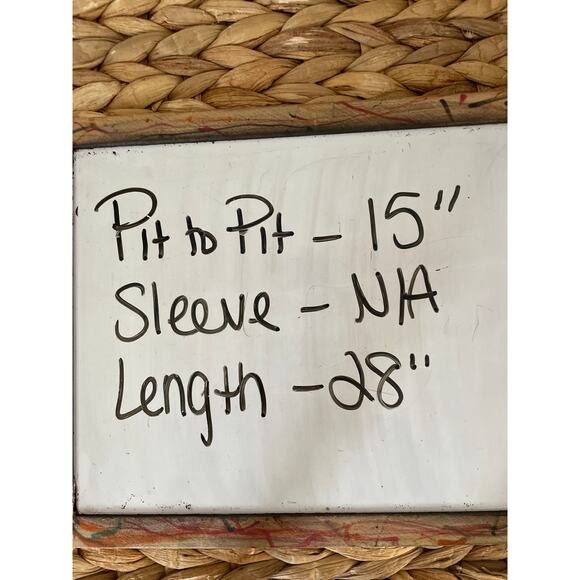 Pit to Pit - 15"
Sleeve - N/A
Length - 28"